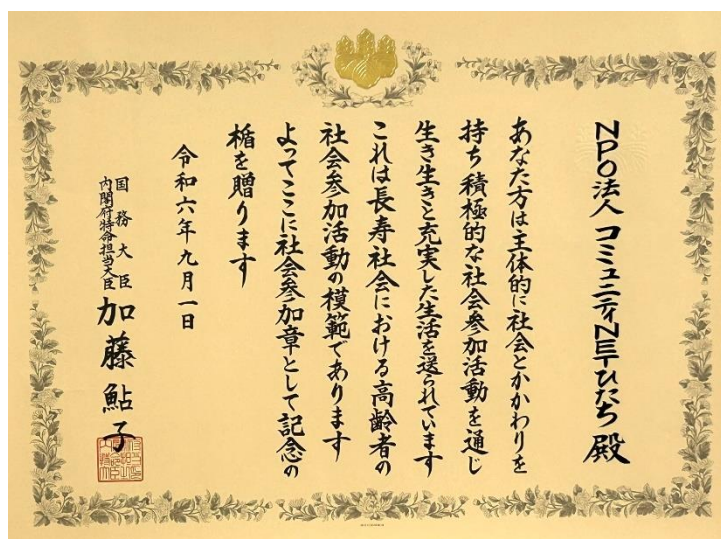 NPO法人 コミュニティNETひたち 殿
あなた方は主体的に社会とかかわりを
持ち積極的な社会参加活動を通じ
生き生きと充実した生活を送られています
これは長寿社会における高齢者の
社会参加活動の模範であります
よってここに社会参加章として記念の
楯を贈ります
令和六年九月一日
国務大臣
内閣府特命担当大臣
加藤鮎子